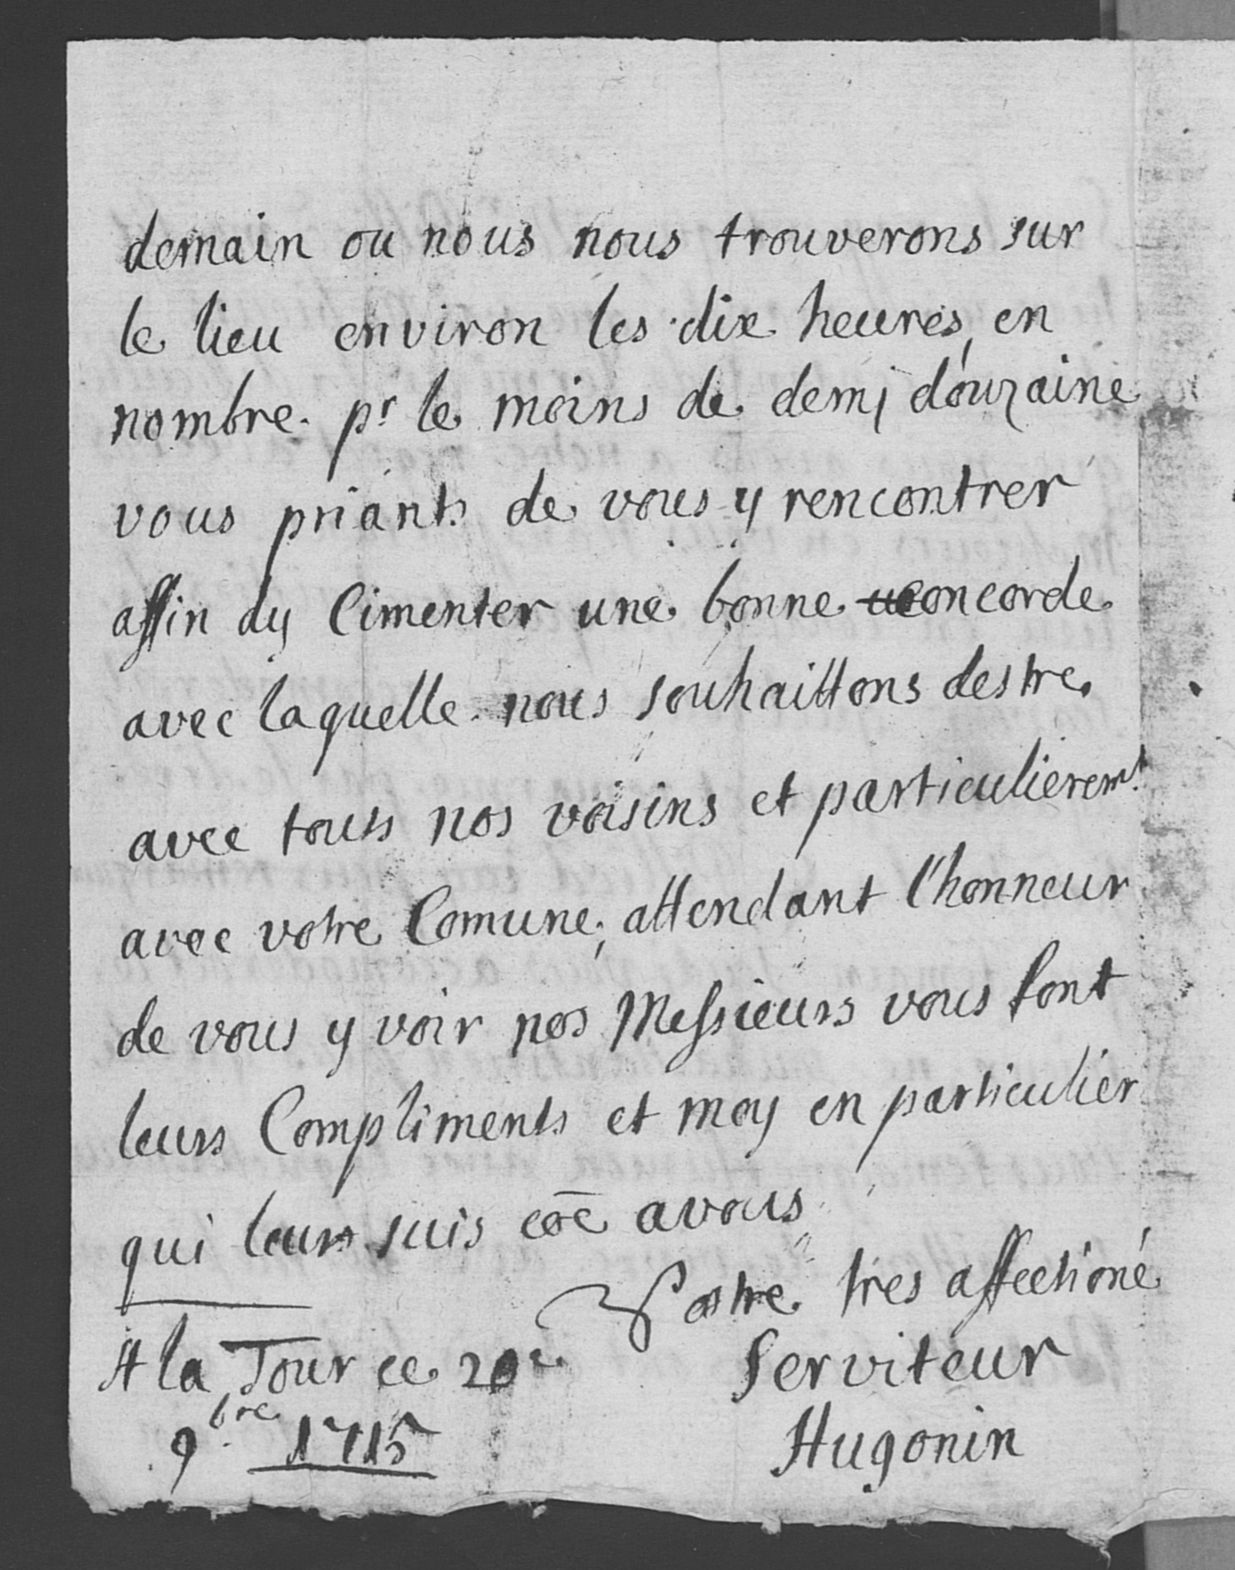 demain ou nous nous trouverons sur
le lieu environ les dix heures, en
nombre pr le moins de demj douzaine
vous priants de vous y rencontrer
affin dy Cimenter une bonne concorde
avec laquelle nous souhaittons destre
avec touts nos voisins et particulieremt
avec votre Comune, attendant l'honneur
de vous y voir nos Messieurs vous font
leurs Compliments et moy en particulier
qui leurs suis coē avous
Vostre tres affectioné
Serviteur
Hugonin
A la Tour ce 20e
9bre 1715